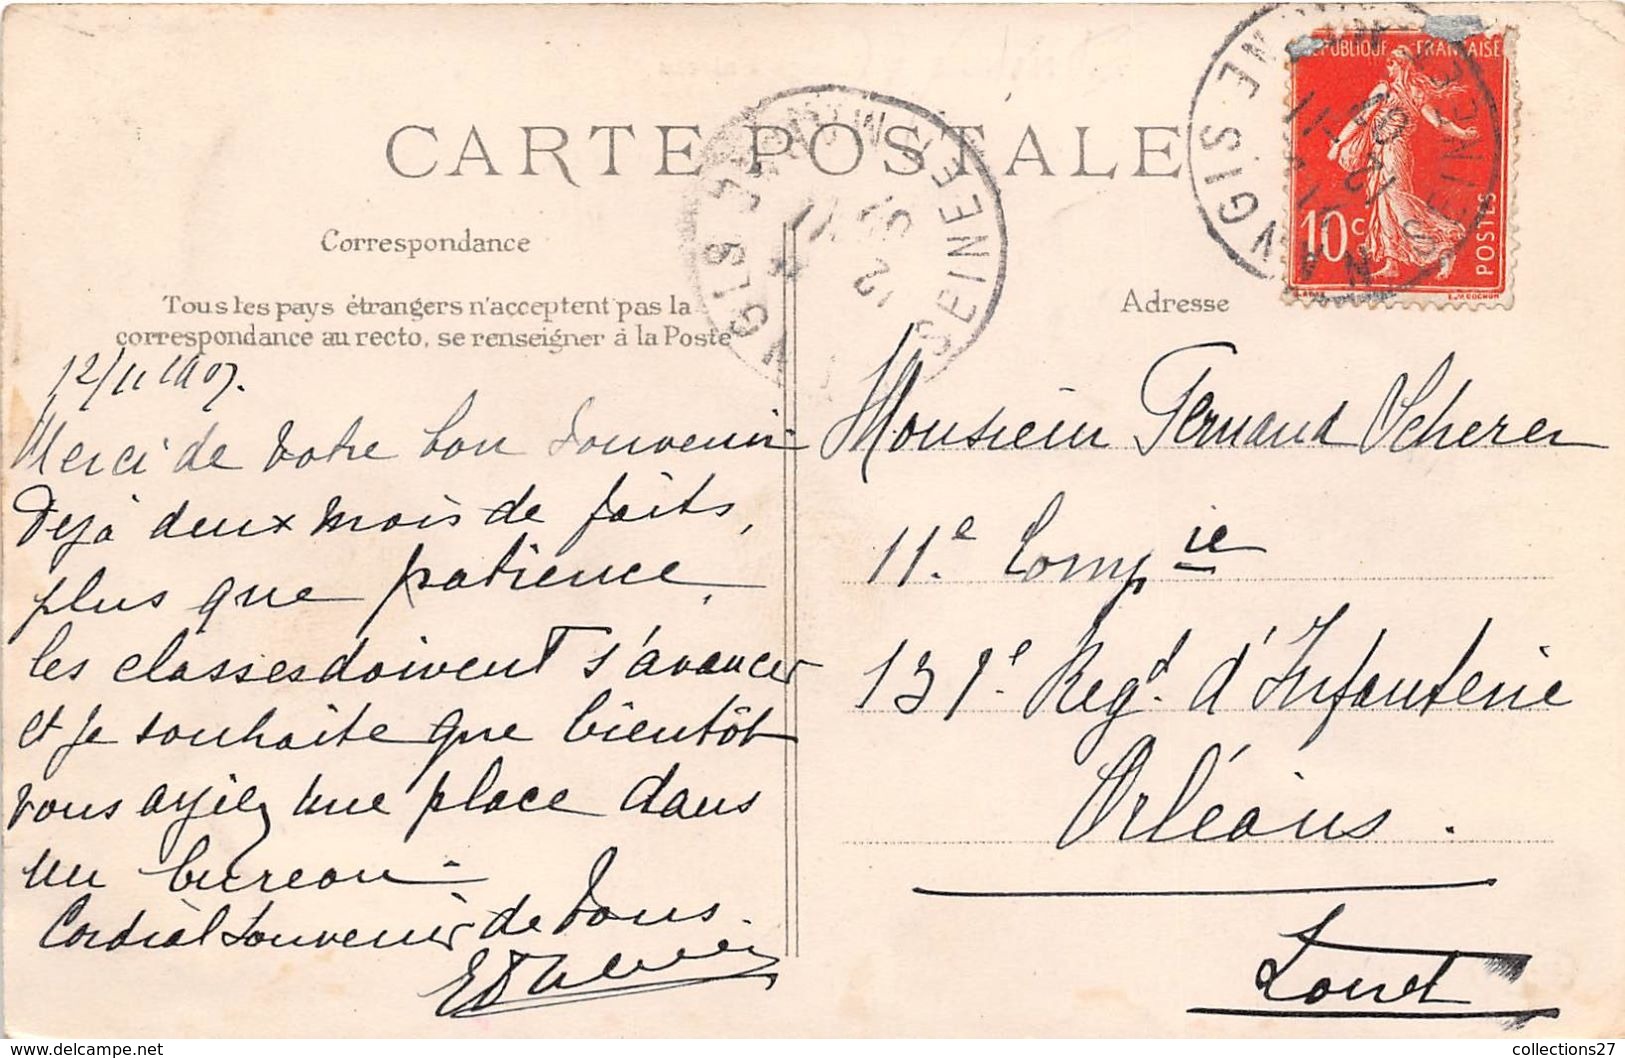 CARTE POSTALE
Correspondance
Tous les pays étrangers n'acceptent pas la
correspondance au recto, se renseigner à la Poste
12/11 1907.
Merci de votre bon souvenir
Déjà deux mois de faits,
plus que patience,
les classes doivent s'avancer
et je souhaite que bientôt
vous ayiez une place dans
un bureau.
Cordial Souvenir de tous.
RÉPUBLIQUE FRANÇAISE
10c
POSTES
SEINE
SEINE
Adresse
Monsieur Fernand Scherer
11e Compie
131e Regt. d'Infanterie
Orléans.
Loiret
collections27